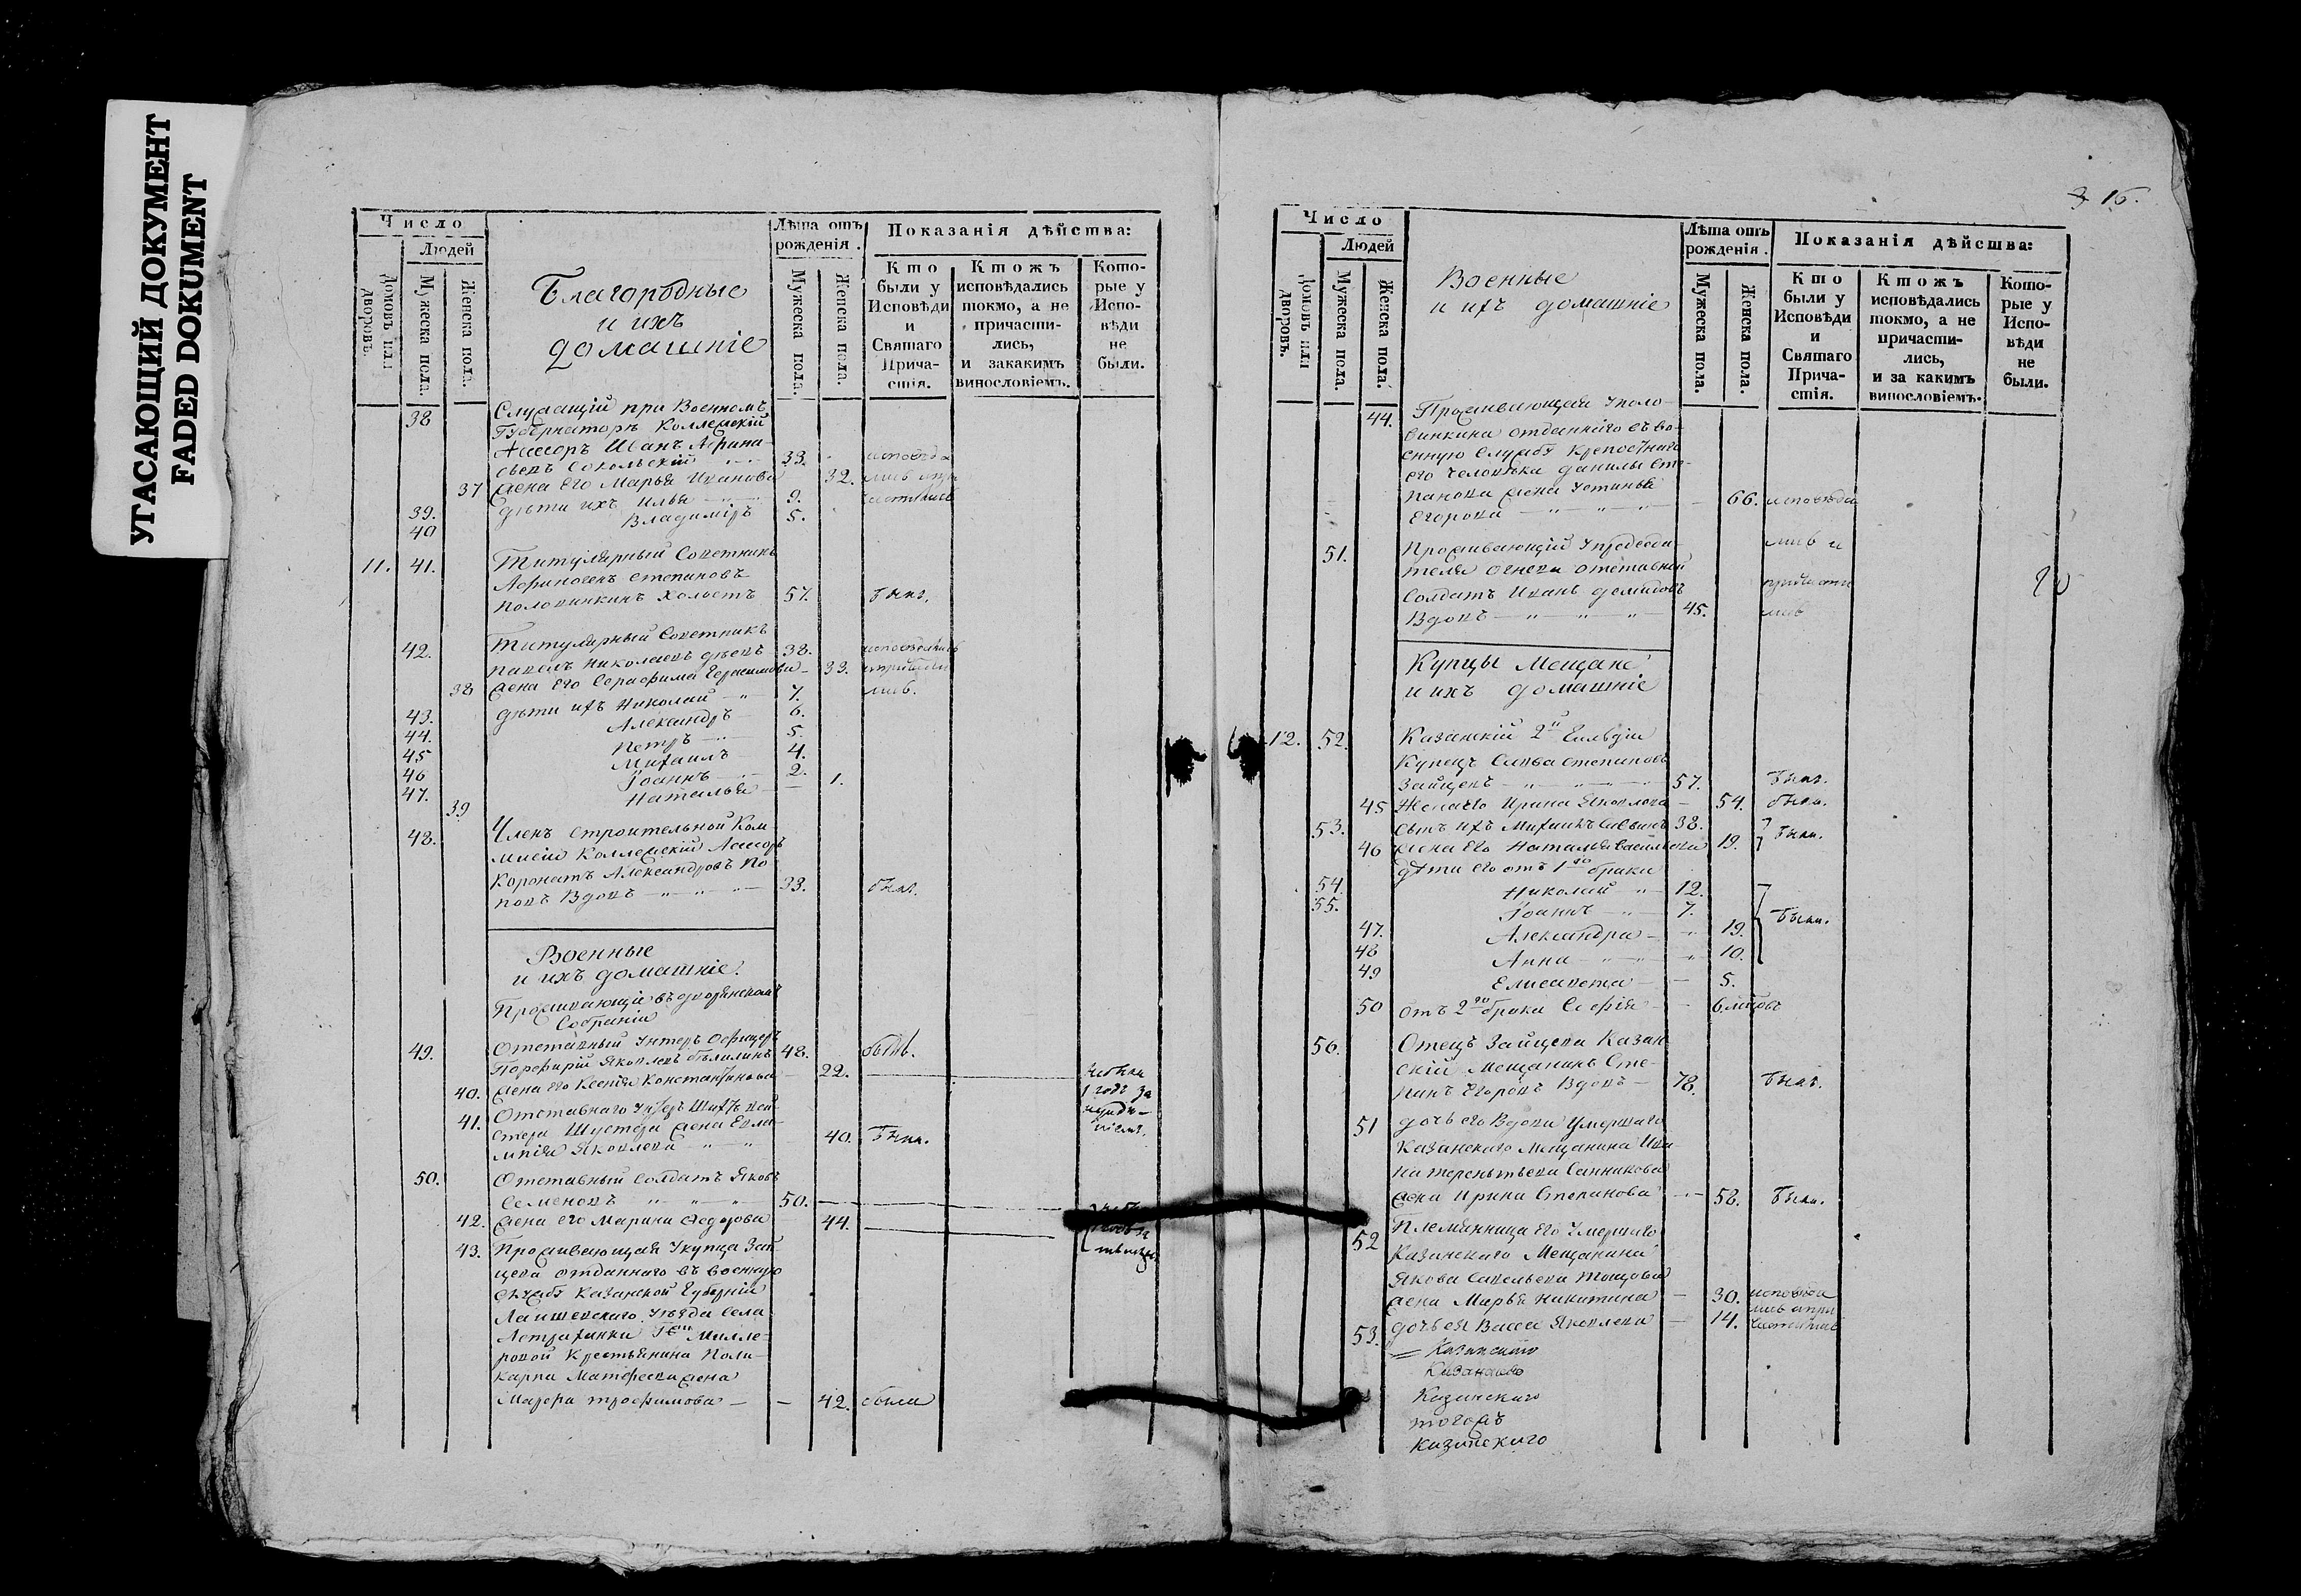 УГАСАЮЩИЙ ДОКУМЕНТ
FADED DOKUMENT
Число
Людей
Домовъ или дворовъ.
Мужеска пола.
Женска пола.
Благородные
и ихъ
домашніе
Лѣта отъ рожденія.
Мужеска пола.
Женска пола.
Показанія дѣйства:
Кто были у Исповѣди и Святаго Прича-стія.
Ктожъ исповѣдались токмо, а не причасти-лись, и закакимъ винословіемъ.
Кото-рые у Испо-вѣди не были.
38 Служащій при Военномъ
Губернаторѣ Коллежскій
Ассесоръ Иванъ Афана-
сьевъ Сокольскій 33. исповѣда
37 жена его Марья Иванова 32. лись и при
39. дѣти ихъ Илья 9. частились
40 Владиміръ 5.
11. 41. Титулярный Советникъ
Афиногенъ Степановъ
Половинкинъ Холостъ 57. былъ.
42. Титулярный Советникъ
Павелъ Николаевъ 38. исповѣдались
38 жена его Серафима Герасимова 33. и причасти
43. дѣти ихъ Николай 7. лись.
44. Александръ 6.
45 Петръ 5.
46 Михаилъ 4.
47. Іоаннъ 2.
39 Наталья 1.
48. Членъ Строительной Ком-
мисіи Коллежскій Ассесоръ
Коронатъ Александровъ По
повъ Вдовъ 33. былъ.
Военные
и ихъ домашніе.
Проживающіе въ дворянскомъ
Собраніи
49. Отставный Унтеръ Офицеръ
Порфирій Яковлевъ 48. былъ.
40. жена его Ксенія Константинова 22.
41. Отставнаго
жена Евла-
мпія Яковлева 40. была.
50. Отставный Солдатъ Яковъ
Семеновъ 50.
42. жена его Марина Федорова 44.
43. Проживающая у купца Зай
цева отданнаго въ военную
службу Казанской Губерніи
Лаишевскаго уѣзда села
Астраханки Г-жи Милле-
ровой Крестьянина Поли-
карпа Матфеева жена
Марфа Трофимова 42. была
3 16.
Число
Людей
Домовъ или дворовъ.
Мужеска пола.
Женска пола.
Военные
и ихъ домашніе
Лѣта отъ рожденія.
Мужеска пола.
Женска пола.
Показанія дѣйства:
Кто были у Исповѣди и Святаго Прича-стія.
Ктожъ исповѣдались токмо, а не причасти-лись, и за какимъ винословіемъ.
Кото-рые у Испо-вѣди не были.
44. Проживающая у поло-
винкина отданнаго въ во-
енную службу крепостнаго
его человѣка Данилы Сте-
панова жена Устинья
Егорова 66. исповѣда
лись и
51. Проживающій
отставный
Солдатъ Иванъ Демидовъ причасти
Вдовъ 45. лись
Купцы Мещане
и ихъ домашніе
12. 52. Казанскій 2й Гильдіи
Купецъ Савва Степановъ
Зайцевъ 57. былъ.
45 Жена его Ирина Яковлева 54. была.
53. сынъ ихъ Михаилъ Саввинъ 38.
46 жена его Наталья Васильева 19. были.
дѣти его отъ 1го брака
54. Николай 12.
55. Іоаннъ 7. были.
47. Александра 19.
48 Анна 10.
49 Елисавета 5.
50 отъ 2го брака Софія 6 мѣсцовъ
56. Отецъ Зайцева Казан
скій Мещанинъ Сте-
панъ Егоровъ Вдовъ 78. былъ.
51 дочь его Вдова умершаго
Казанскаго Мещанина Ива
на Терентьева Санникова
жена Ирина Степанова 58. была.
52 Племянница его умершаго
Казанскаго Мещанина
Якова Савельева
жена Марья Никитина 30. исповѣда
лись и при
53. дочь ея Васса Яковлева 14. частились
Казанскаго
Казанскаго
Казанскаго
тогожъ
Казанскаго